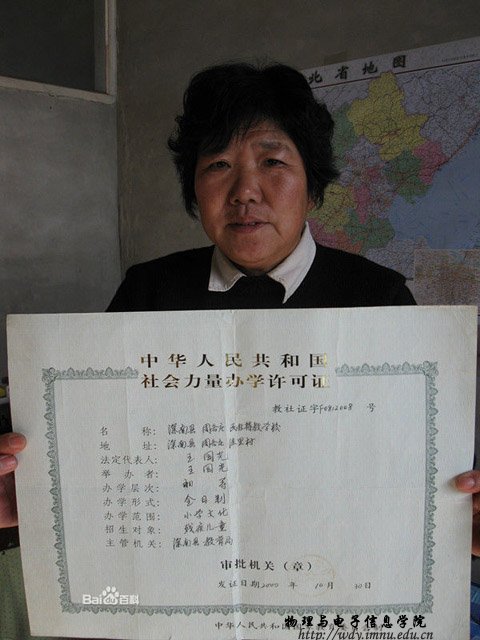 北省地图
中华人民共和国
社会力量办学许可证
教社证字F0812008 号
名 称: 滦南县
地 址: 滦南县
法定代表人: 王国光
举 办 者: 王国光
办学层次: 初等
办学形式: 全日制
办学范围: 小学文化
招生对象: 残疾儿童
主管机关: 滦南县教育局
审批机关（章）
发证日期2000 年 10 月 30日
中华人民共和国
Bai百科
物理与电子信息学院
http://wdy.imnu.edu.cn